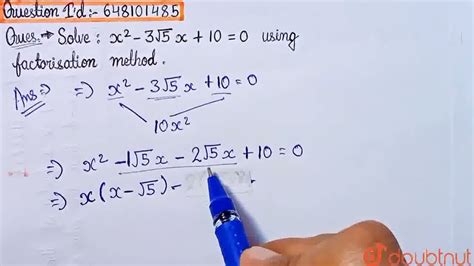 Question I'd:- 648101485
Ques.→ Solve : x² - 3√5 x + 10 = 0 using
factorisation method.
Ans:⇒ ⇒) x² - 3√5x + 10 = 0
10x²
⇒) x² - 1√5x - 2√5x + 10 = 0
⇒ x(x - √5) -
doubtnut